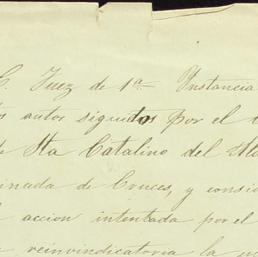 C. Juez de 1ª Instancia
os autos seguidos por el
de Sta Catalina del Mo
inada de Cruces, y consid
accion intentada por el
reinvindicatoria la